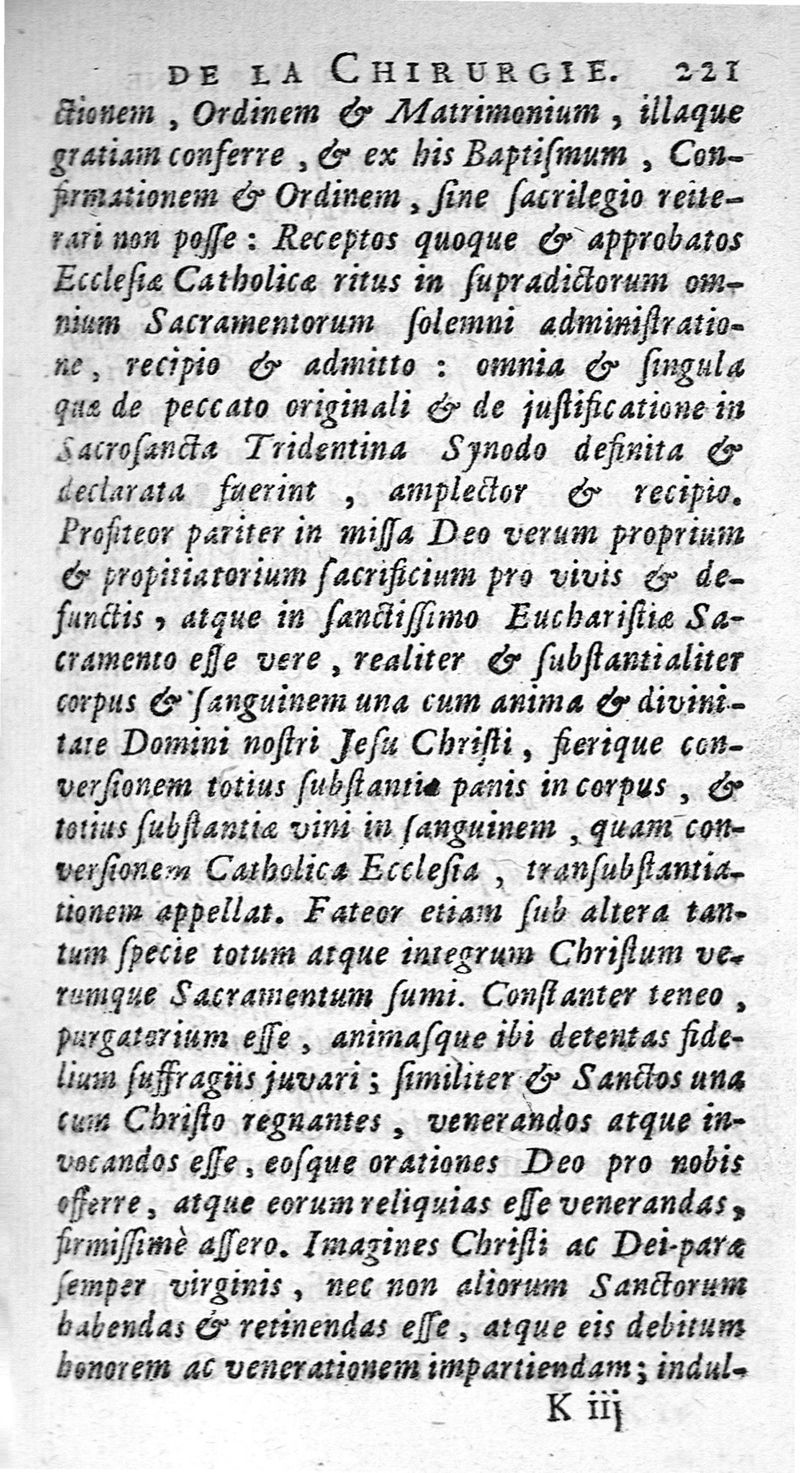 DE LA CHIRURGIE. 221
ctionem, Ordinem & Matrimonium, illaque
gratiam conferre, & ex his Baptiſmum, Con-
firmationem & Ordinem, ſine ſacrilegio reite-
rari non poſſe : Receptos quoque & approbatos
Eccleſiæ Catholicæ ritus in ſupradictorum om-
nium Sacramentorum ſolemni adminiſtratio-
ne, recipio & admitto : omnia & ſingula
quæ de peccato originali & de juſtificatione in
Sacroſancta Tridentina Synodo definita &
declarata fuerint, amplector & recipio.
Profiteor pariter in miſſa Deo verum proprium
& propitiatorium ſacrificium pro vivis & de-
functis, atque in ſanctiſſimo Euchariſtiæ Sa-
cramento eſſe vere, realiter & ſubſtantialiter
corpus & ſanguinem una cum anima & divini-
tate Domini noſtri Jeſu Chriſti, fierique con-
verſionem totius ſubſtantiæ panis in corpus, &
totius ſubſtantiæ vini in ſanguinem, quam con-
verſionem Catholica Eccleſia, tranſubſtantia-
tionem appellat. Fateor etiam ſub altera tan-
tum ſpecie totum atque integrum Chriſtum ve-
rumque Sacramentum ſumi. Conſtanter teneo,
purgatorium eſſe, animaſque ibi detentas fide-
lium ſuffragiis juvari ; ſimiliter & Sanctos una
cum Chriſto regnantes, venerandos atque in-
vocandos eſſe, eoſque orationes Deo pro nobis
offerre, atque eorum reliquias eſſe venerandas,
firmiſſimè aſſero. Imagines Chriſti ac Dei-paræ
ſemper virginis, nec non aliorum Sanctorum
habendas & retinendas eſſe, atque eis debitum
honorem ac venerationem impartiendam ; indul-
K iij